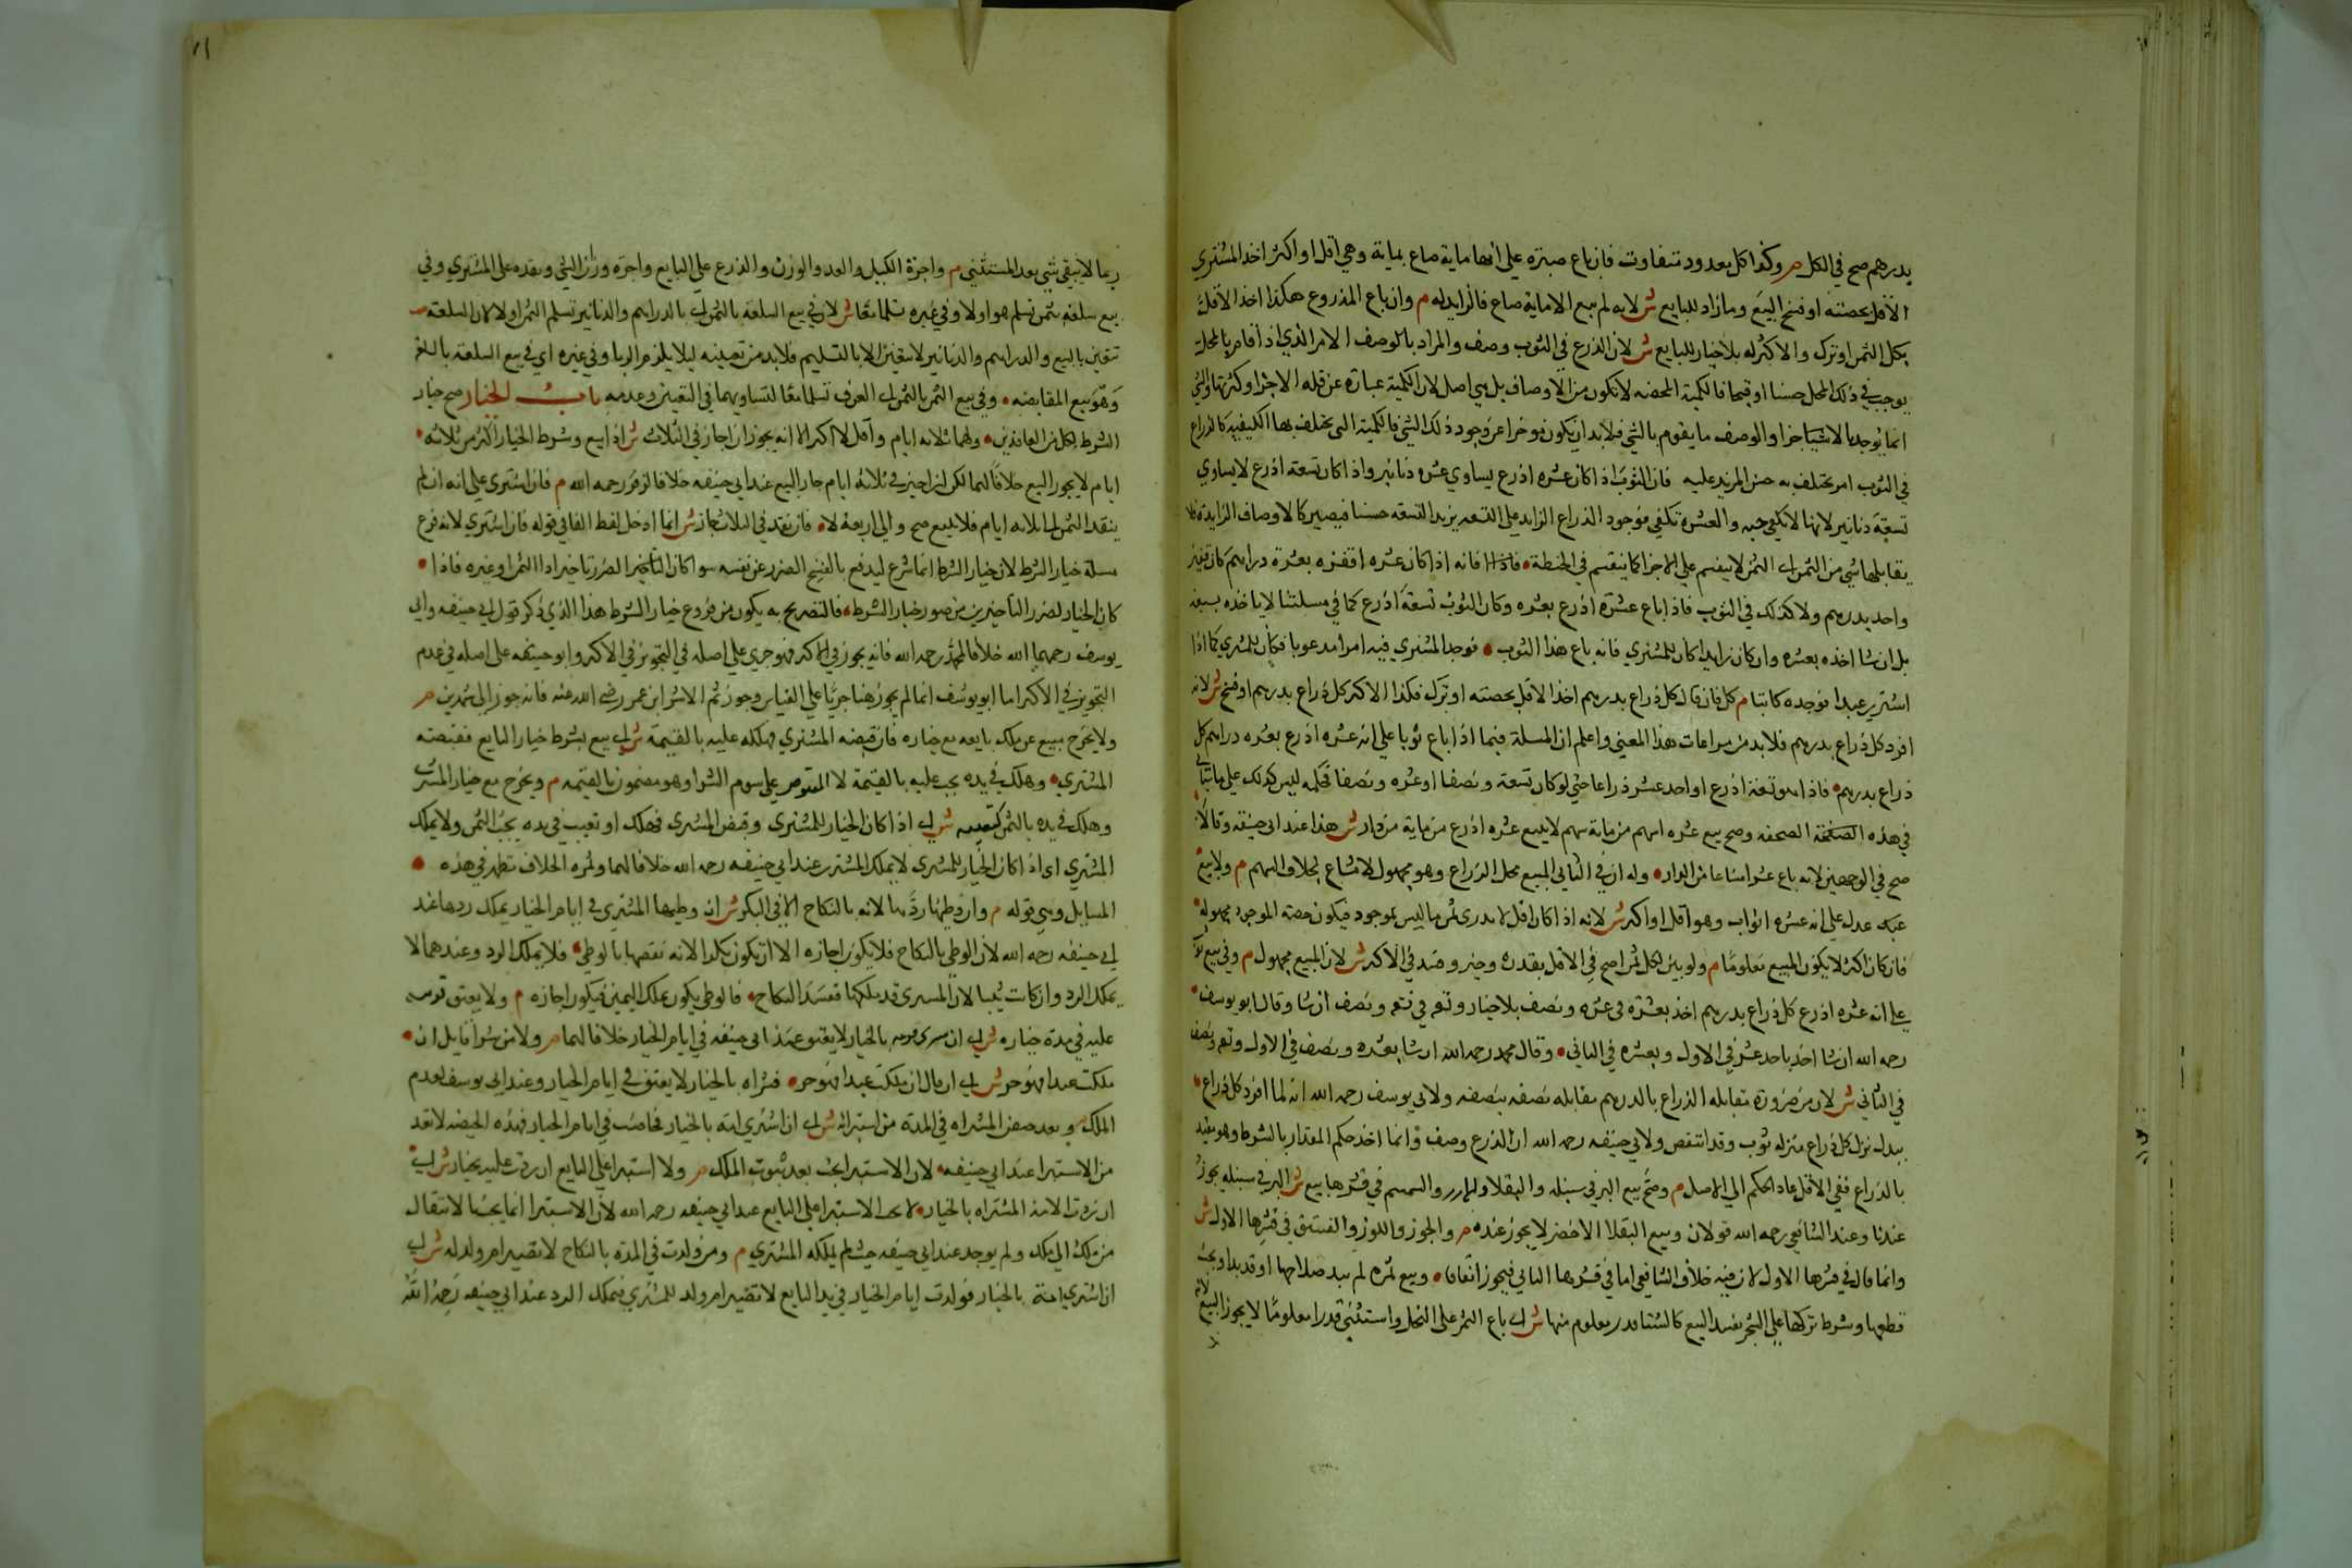 بدرهم صح في الكل م وكذا كل معدود متفاوت فان باع صبرة على انها ماية صاع بماية وهي اقل او اكثر اخذ المشتري
الاقل بحصته او فسخ البيع وما زاد للبايع ش لانه لم يبع الا ماية صاع فالزايد له م وان باع المذروع هكذا اخذ الاقل
بكل الثمن او ترك والاكثر له بلا خيار للبايع ش لان الذرع في الثوب وصف والمراد بالوصف الامر الذي اذا قام بالمحل
يوجب في ذلك المحل حسنا او قبحا فالكمية المحضه لا تكون من الاوصاف بل هي اصل لان الكمية عبارة عن قلة الاجزا وكثرتها والشي
انما يوجد بالاشيا جزا والوصف ما يقوم بالشي فلابد ان يكون موخرا عن وجود ذلك الشي فالكمية التي يختلف بها الكيفيه كالذراع
في الثوب امر يختلف به حسن المزيد عليه فان الثوب اذا كان عشره اذرع يساوي عشره دنانير واذا كان تسعة اذرع لا يساوي
تسعة دنانير لانها لا تكفي جبه والعشرة تكفي فوجود الذراع الزايد على التسعه يزيد التسعه حسنا فيصير كالاوصاف الزايدة فلا
يقابلها شي من الثمن اي الثمن لا ينقسم على الاجزا كما ينقسم في الحنطة فانه اذا كان عشره اقفزه بعشرة دراهم كان قفيز
واحد بدرهم ولا كذلك في الثوب فاذا باع عشرة اذرع بعشره وكان الثوب تسعة اذرع كما في مسلتنا لا ياخذه بتسعه
بل ان شا اخذه بعشره وان كان زايدا كان للمشتري فانه باع هذا الثوب فوجد المشتري فيه امرا مدعوبا فكان للمشتري كما اذا
اشترى عبدا فوجده كاتبا م كل فان قال كل ذراع بدرهم اخذ الاقل بحصته او ترك فكذا الاكثر كل ذراع بدرهم او فسخ ش لانه
افرد كل ذراع بدرهم فلابد من مراعات هذا المعنى واعلم ان المسلة فيما اذا باع ثوبا على انه عشره اذرع بعشره دراهم كل
ذراع بدرهم فاذا هو تسعة اذرع او احد عشر ذراعا حتى لو كان تسعة ونصفا او عشره ونصفا فحكمه ليس كذلك على ما ياتي
في هذه الصفحة وصح بيع عشره اسهم من ماية سهم لا بيع عشره اذرع من ماية من دار ش هذا عند ابي حنيفه وقالا
صح في الوجهين لانه باع عشرا شايعا من الدار وله ان في الثاني المبيع محل الذراع وهو مجهول لا مشاع بخلاف السهم م ولا بيع
عدل على انه عشره اثواب وهو اقل او اكثر ش لانه اذا كان اقل لا يدرى ثمن ما ليس بموجود فيكون حصة الموجود مجهولة
فان كان اكثر لا يكون المبيع معلوما م ولو بين لكل ثمنا صح في الاقل بقدره وخير وفسد في الاكثر ش لان المبيع مجهول م وفي بيع ثوب
على انه عشره اذرع كل ذراع بدرهم اخذ بعشرة في عشره ونصف بلا خيار وتسعه في تسعه ونصف ان شا وقال ابو يوسف
رحمه الله ان شا اخذ باحد عشر في الاول وبعشره في الثاني وقال محمد رحمه الله ان شا بعشره ونصف في الاول وتسعه ونصف
في الثاني ش لان من ضرورة مقابله الذراع بالدرهم مقابله نصفه بنصفه ولابي يوسف رحمه الله انه لما افرد كل ذراع
ببدل نزل كل ذراع منزله ثوب وقد انتقص ولابي حنيفه رحمه الله ان الذرع وصف وانما اخذ حكم المقدار بالشرط وهو مقيد
بالذراع ففي الاقل عاد الحكم الى الاصل م وصح بيع البر في سنبله والبقلا والارز والسمسم في قشرها بيع ش البر في سنبله يجوز
عندنا وعند الشافعي رحمه الله قولان وبيع البقلا الاخضر لا يجوز عنده م والجوز واللوز والفستق في قشرها الاول ش
وانما قال في قشرها الاول لان فيه خلاف الشافعي اما في قشرها الثاني فيجوز اتفاقا وبيع ثمره لم يبد صلاحها او قد بدا ويجب
قطعها وشرط تركها على الشجر يفسد البيع كاستثنا قدر معلوم منها ش اي باع الثمر على النخل واستثنى قدرا معلوما لا يجوز البيع لانه
ربما لا يبقى شي بعد المستثنى م واجرة الكيل والعد والوزن والذرع على البايع واجره وزن الثمن ونقده على المشتري وفي
بيع سلعة بثمن تسلم هو اولا وفي غيره تسلما معا ش لان في بيع السلعة بالثمن اي بالدراهم والدنانير تسلم الثمن اولا لان السلعة
تتعين بالبيع والدراهم والدنانير لا تتعين الا بالتسليم فلابد من تعيينه ليلا يلزم الربا وفي غيره اي في بيع السلعة بالسلعة
وهو بيع المقايضه وفي بيع الثمن بالثمن اي الصرف تسلما معا لتساويهما في التعين وعدمه باب الخيار صح خيار
الشرط لكل من العاقدين ولهما ثلاثه ايام واقل لا اكثر الا انه يجوز ان اجاز في الثلاث ش اذا بيع وشرط الخيار اكثر من ثلاثه
ايام لا يجوز البيع خلافا لهما لكن ان اجيز في ثلاثة ايام جاز البيع عند ابي حنيفه خلافا لزفر رحمه الله م فان اشترى على انه ان لم
ينقد الثمن الى ثلاثه ايام فلا بيع صح والى اربعة لا فان نقد في الثلاث جاز ش انما ادخل لفظ الفا في قوله فان اشترى لانه فرع
مسلة خيار الشرط لان خيار الشرط انما شرع ليدفع بالفسخ الضرر عن نفسه سوا كان الضرر تاخير ادا الثمن او غيره فاذا
كان الخيار لضرر التاخير من صور خيار الشرط فالتصريح به يكون من فروع خيار الشرط هذا الذي ذكر قول ابي حنيفه وابي
يوسف رحمهما الله خلافا لمحمد رحمه الله فانه يجوز في الاكثر فهو جرى على اصله في التجويز في الاكثر وابو حنيفه على اصله في عدم
التجويز في الاكثر اما ابو يوسف انما لم يجوز هنا جريا على القياس وجوز ثم الاثر ابن عمر رضي الله عنه فانه جوز الى شهرين م
ولا يخرج مبيع عن ملك بايعه مع خياره فان قبضه المشتري فهلكه عليه بالقيمة ش اي بيع بشرط خيار البايع فقبضه
المشتري وهلك في يده يجب عليه بالقيمة لا المقبوض على سوم الشرا وهو مضمون بالقيمه م ويخرج مع خيار المشتري
وهلك في يده بالثمن كتعيبه ش اي اذا كان الخيار للمشتري وقبض المشتري فهلك او تعيب في يده يجب الثمن ولا يملك
المشتري اي اذا كان الخيار للمشتري لا يملك المشتري عند ابي حنيفه رحمه الله خلافا لهما وثمره الخلاف تظهر في هذه
المسايل وهي قوله م وان وطيها ردها لانه بالنكاح الا في البكر ش ان وطيها المشتري في ايام الخيار يملك ردها عند
ابي حنيفه رحمه الله لان الوطي بالنكاح فلا يكون اجازه الا ان تكون بكرا لانه نقصها بالوطي فلا يملك الرد وعندهما لا
يملك الرد وان كانت ثيبا لان المشتري قد ملكها ففسد النكاح فالوطي يكون بملك اليمين فيكون اجازه م ولا يعتق قريبه
عليه في مدة خياره ش اي ان اشترى قريبه بالخيار لا يعتق عند ابي حنيفه في ايام الخيار خلافا لهما م ولا من شراه قايل ان
ملكت عبدا فهو حر ش اي ان قال ان ملكت عبدا فهو حر فشراه بالخيار لا يعتق في ايام الخيار وعند ابي يوسف لعدم
الملك وبعد حيض المشتراه في المدة من استبرائه ش اي ان اشترى امة بالخيار فحاضت في ايام الخيار فهذه الحيضه لا تعد
من الاستبرا عند ابي حنيفه لان الاستبرا يجب بعد ثبوت الملك م ولا استبرا على البايع ان ردت عليه بخيار ش اي
ان ردت الامة المشتراه بالخيار لا يجب الاستبرا على البايع عند ابي حنيفه رحمه الله لان الاستبرا انما يجب بالانتقال
من ملك الى ملك ولم يوجد عند ابي حنيفه حيث لم يملكه المشتري م ومن ولدت في المدة بالنكاح لا تصير ام ولد له ش اي
ان اشترى امة بالخيار فولدت ايام الخيار في يد البايع لا تصير ام ولد للمشتري فيملك الرد عند ابي حنيفه رحمه الله